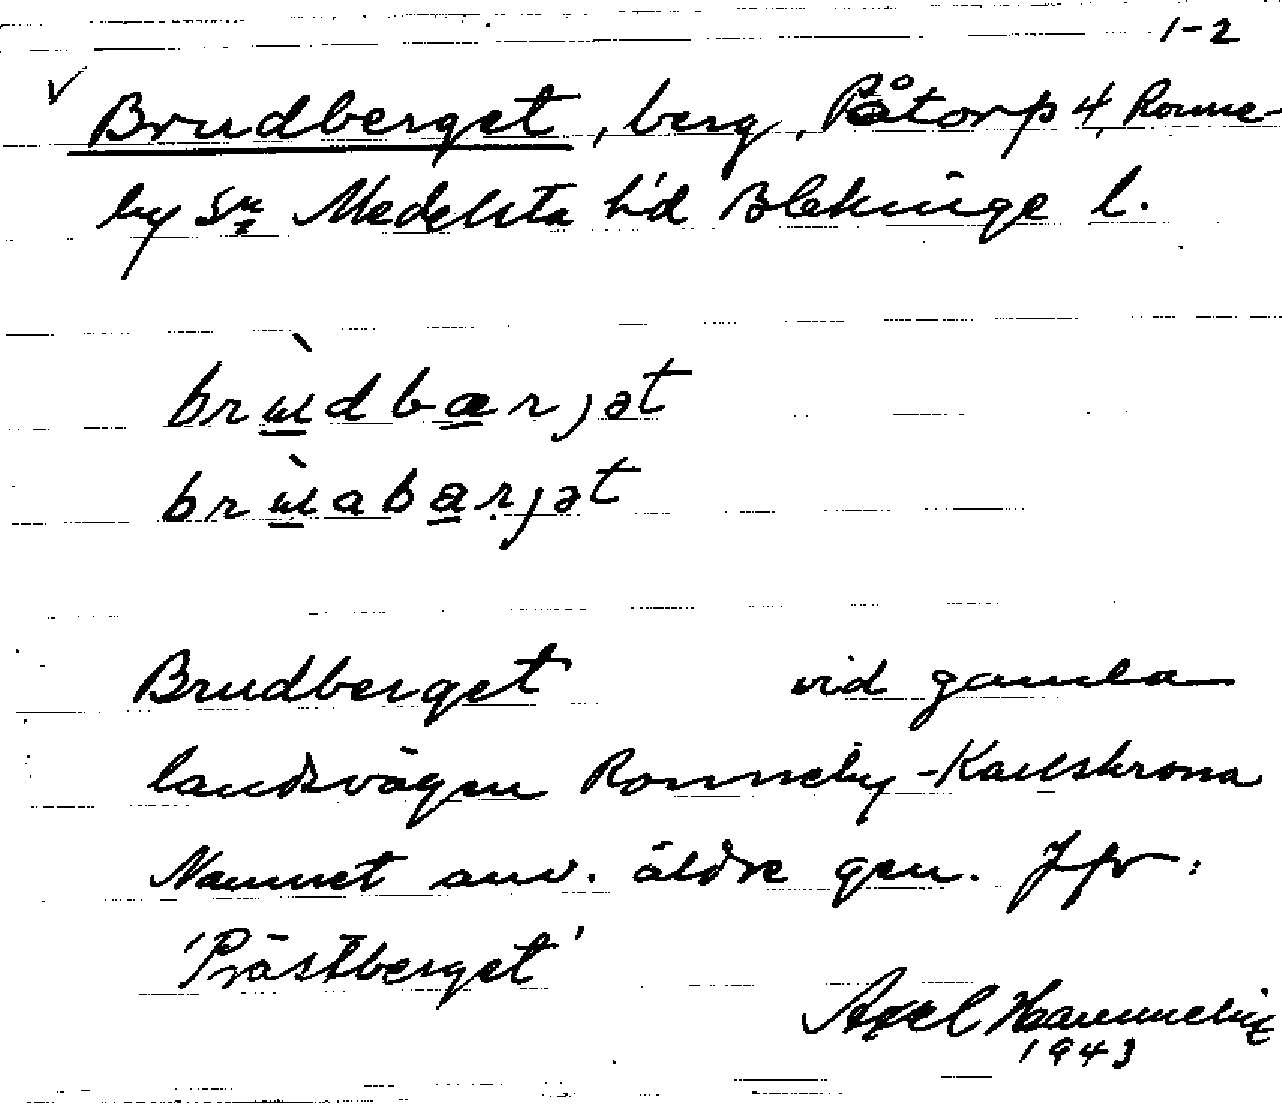 1-2
✓ Brudberget, berg, Påtorp 4, Ronne-
by sn Medelsta h'd Blekinge l.
brùdbærjət
brùabarjət
Brudberget vid gamla
landsvägen Ronneby-Karlskrona
Namnet anv. äldre gen. Jfr:
'Prästberget'
Axel
1943